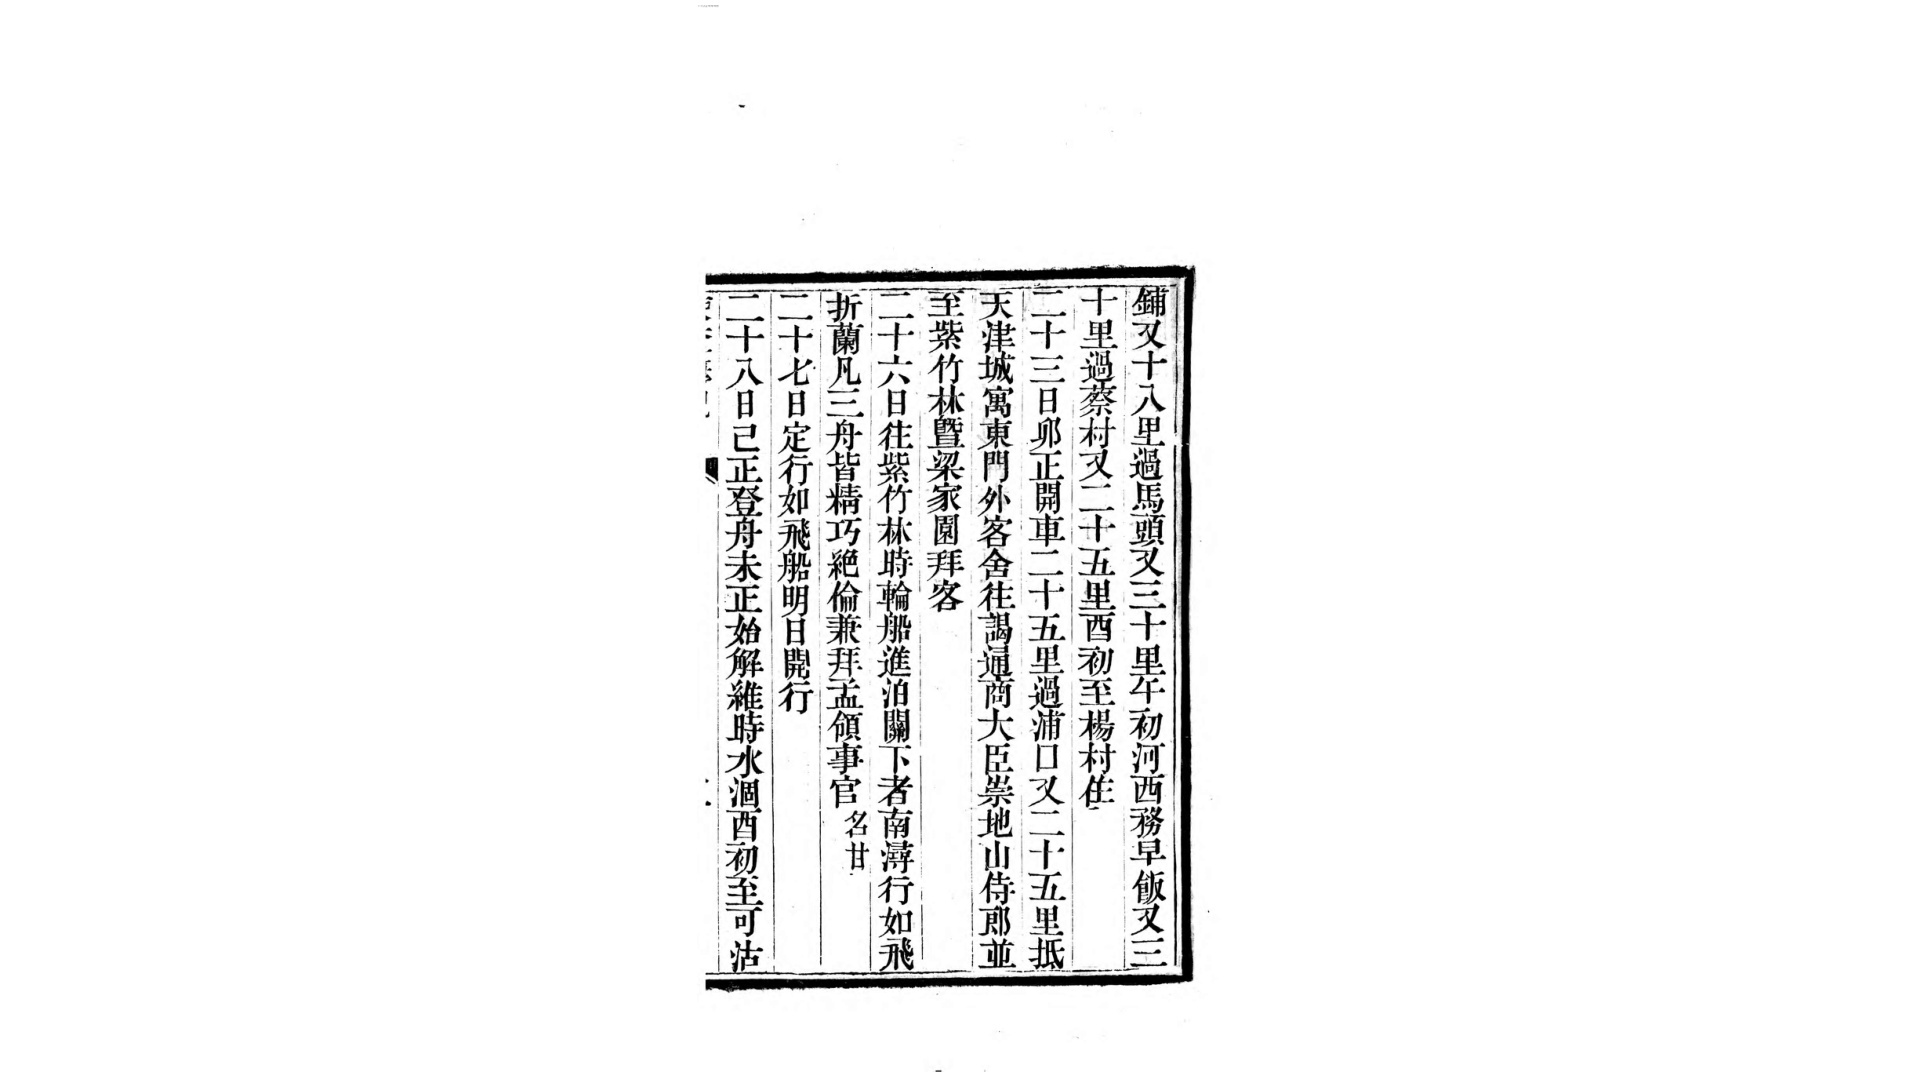 鋪又十八里過馬頭又三十里午初河西務早飯又三
十里過蔡村又二十五里酉初至楊村住
二十三日卯正開車二十五里過浦口又二十五里抵
天津城寓東門外客舍往謁通商大臣崇地山侍郎並
至紫竹林暨梁家園拜客
二十六日往紫竹林時輪船進泊關下者南潯行如飛
折蘭凡三舟皆精巧絕倫兼拜孟領事官名甘
二十七日定行如飛船明日開行
二十八日已正登舟未正始解維時水涸酉初至可沽